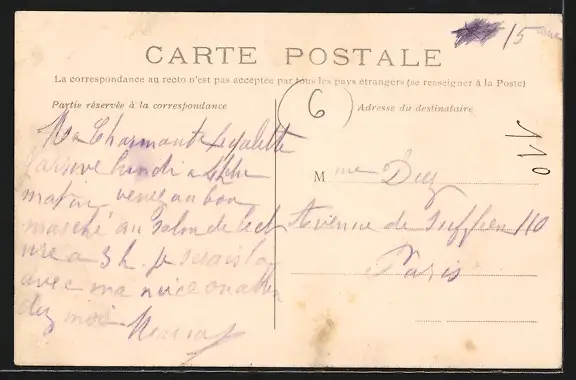 15
CARTE POSTALE
La correspondance au recto n'est pas acceptée par tous les pays étrangers (se renseigner à la Poste)
Partie réservée à la correspondance
6
Adresse du destinataire
110
Ma Charmante
J'arrive lundi a
matin venez au bon
marché au Salon de lect
ure a 3 h. je serais la
avec ma niece on atten
dez moi
Mme Diez
Avenue de Suffren 110
Paris